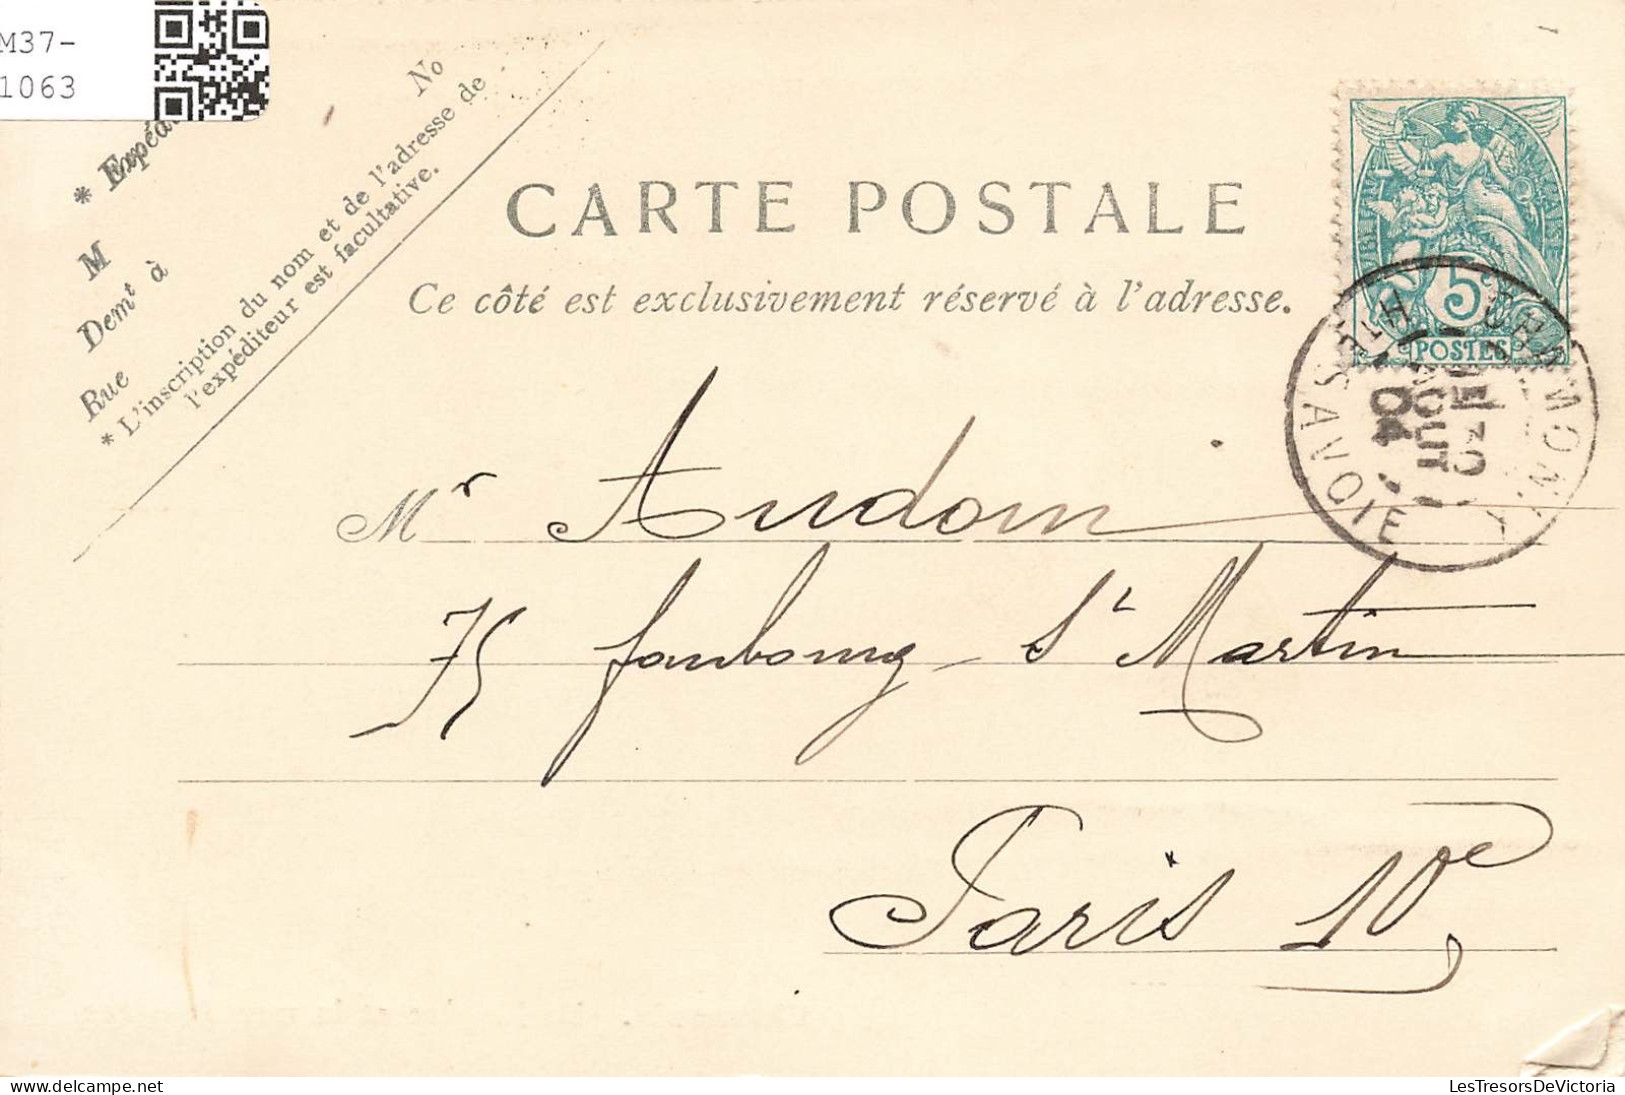 M37-
1063
No
* Expéd
M
Demt à
Rue
* L'inscription du nom et de l'adresse de
l'expéditeur est facultative.
CARTE POSTALE
Ce côté est exclusivement réservé à l'adresse.
5
POSTES
CHAMONIX
HTE SAVOIE
30
AOUT
04
Mr Audoin
75 faubourg St Martin
Paris 10e
LesTresorsDeVictoria (delcampe.net)
LesTresorsDeVictoria